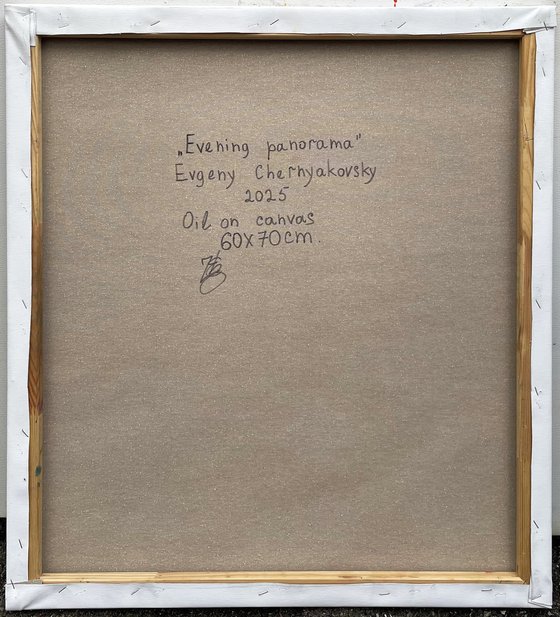 „Evening panorama"
Evgeny Chernyakovsky
2025
Oil on canvas
60x70cm.